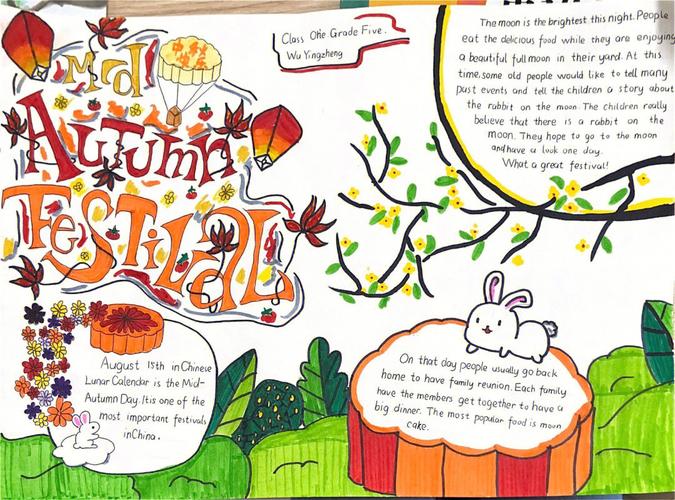 Mid
中秋
Autumn
Festival
Class One Grade Five.
Wu Yingzheng
The moon is the brightest this night. People
eat the delicious food while they are enjoying
a beautiful full moon in their yard. At this
time, some old people would like to tell many
past events and tell the children a story about
the rabbit on the moon. The children really
believe that there is a rabbit on the
moon. They hope to go to the moon
and have a look one day.
What a great festival!
August 15th in Chinese
Lunar Calendar is the Mid-
Autumn Day. Itis one of the
most important festivals
inChina.
On that day people usually go back
home to have family reunion. Each family
have the members get together to have a
big dinner. The most popular food is moon
cake.